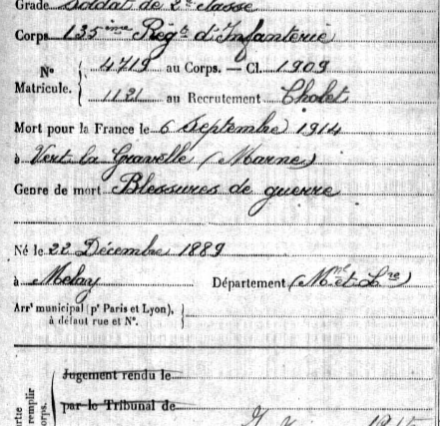 Grade Soldat de 2e classe
Corps 135ème Régt d'Infanterie
Nº 4719 au Corps. — Cl. 1909
Matricule. 1121 au Recrutement Cholet
Mort pour la France le 6 Septembre 1914
à Vert la Gravelle (Marne)
Genre de mort Blessures de guerre
Né le 22 Décembre 1889
à Melay Département (Mne et Lre)
Arrt municipal (pr Paris et Lyon),
à défaut rue et Nº.
Jugement rendu le
par le Tribunal de
remplir